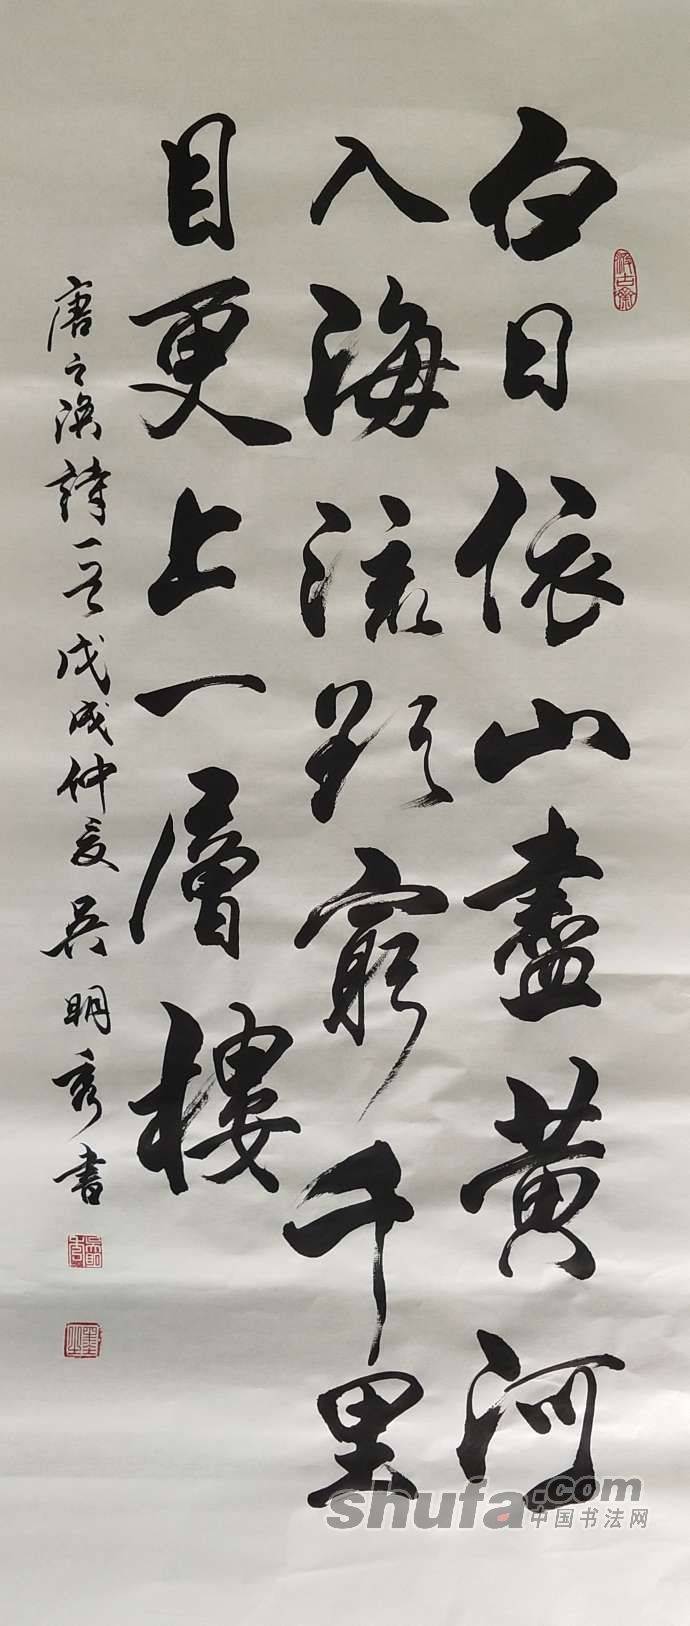 白日依山盡黄河
入海流欲窮千里
目更上一層樓
唐之渙詩一首戊戌仲夏吴明秀書
shufa.com
中国书法网